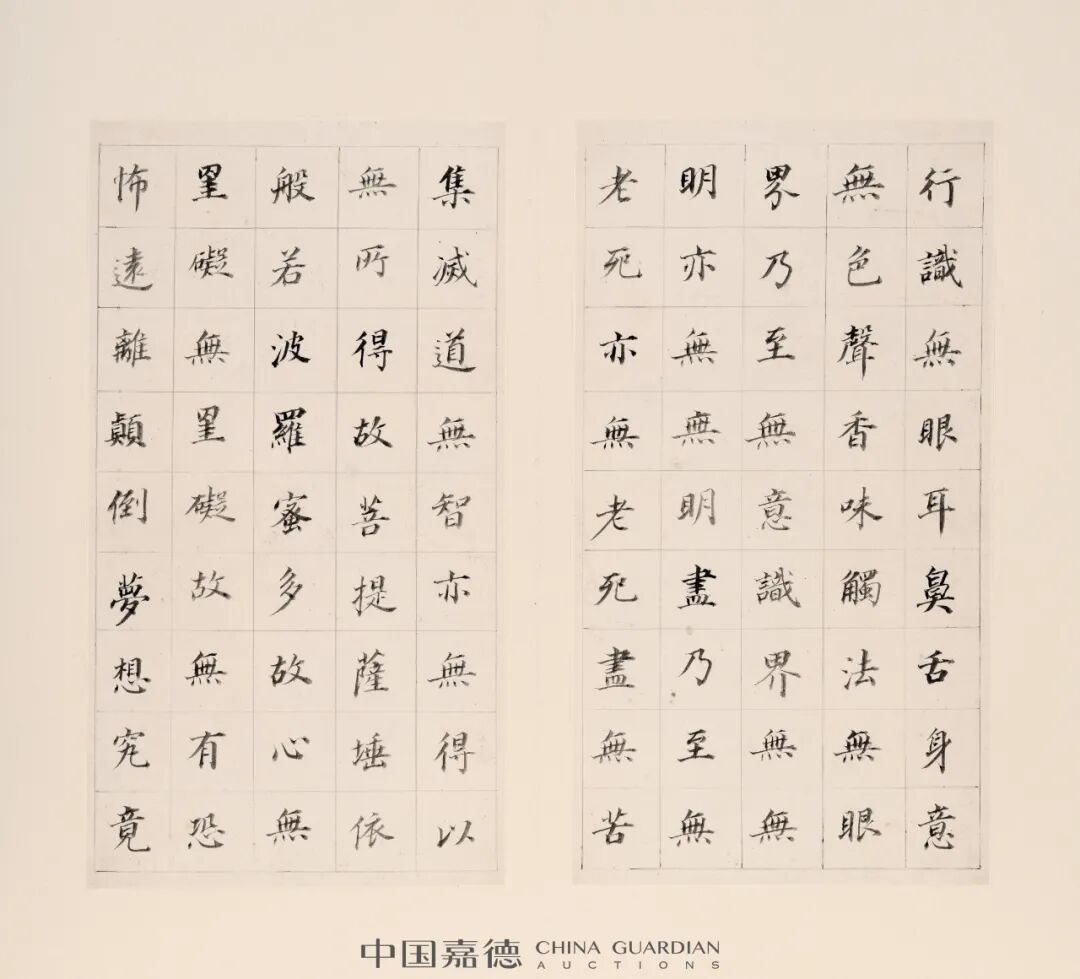 行識無眼耳鼻舌身意
無色聲香味觸法無眼
界乃至無意識界無無
明亦無無明盡乃至無
老死亦無老死盡無苦
集滅道無智亦無得以
無所得故菩提薩埵依
般若波羅蜜多故心無
罣礙無罣礙故無有恐
怖遠離顛倒夢想究竟
中国嘉德 CHINA GUARDIAN
AUCTIONS